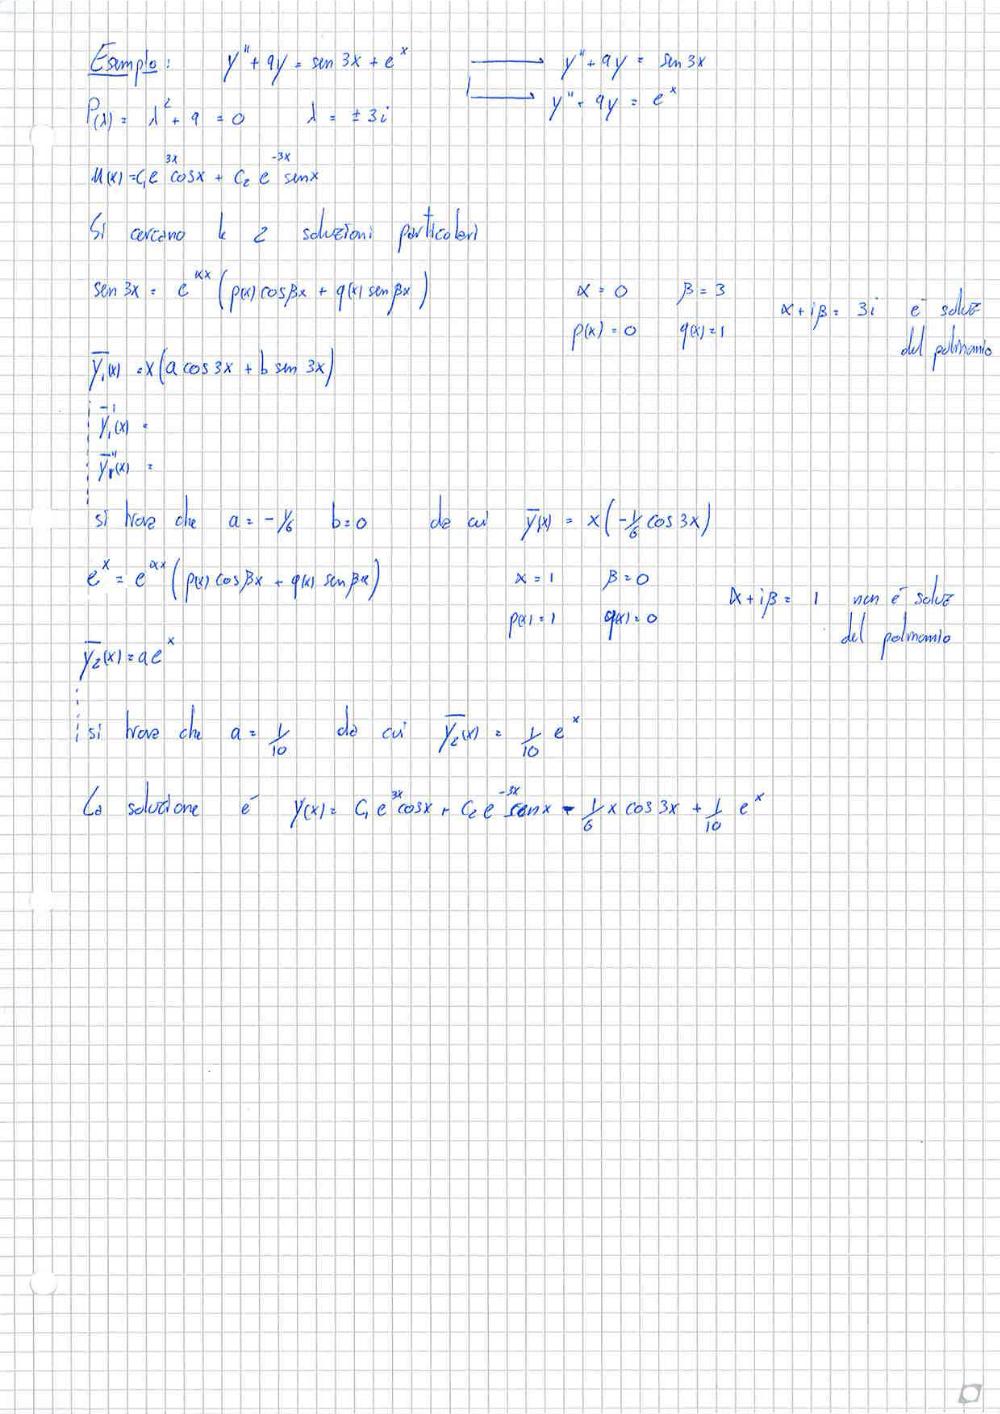 Esempio: y'' + 9y = sen 3x + e^x → y'' + 9y = sen 3x
→ y'' + 9y = e^x
P(λ) = λ^2 + 9 = 0 λ = ± 3i
u(x) = C₁e^3x cosx + C₂ e^-3x senx
Si cercano le 2 soluzioni particolari
sen 3x = e^αx (p(x) cosβx + q(x) senβx) α = 0 β = 3 α + iβ = 3i è soluz
p(x) = 0 q(x) = 1 del polinomio
ȳ₁(x) = x(a cos 3x + b sen 3x)
ȳ₁'(x) =
ȳ₁''(x) =
si trova che a = -1/6 b = 0 da cui ȳ(x) = x(-1/6 cos 3x)
e^x = e^αx (p(x) cosβx + q(x) senβx) α = 1 β = 0 α + iβ = 1 non è soluz
p(x) = 1 q(x) = 0 del polinomio
ȳ₂(x) = ae^x
si trova che a = 1/10 da cui ȳ₂(x) = 1/10 e^x
La soluzione è y(x) = C₁ e^3x cosx + C₂ e^-3x senx - 1/6 x cos 3x + 1/10 e^x